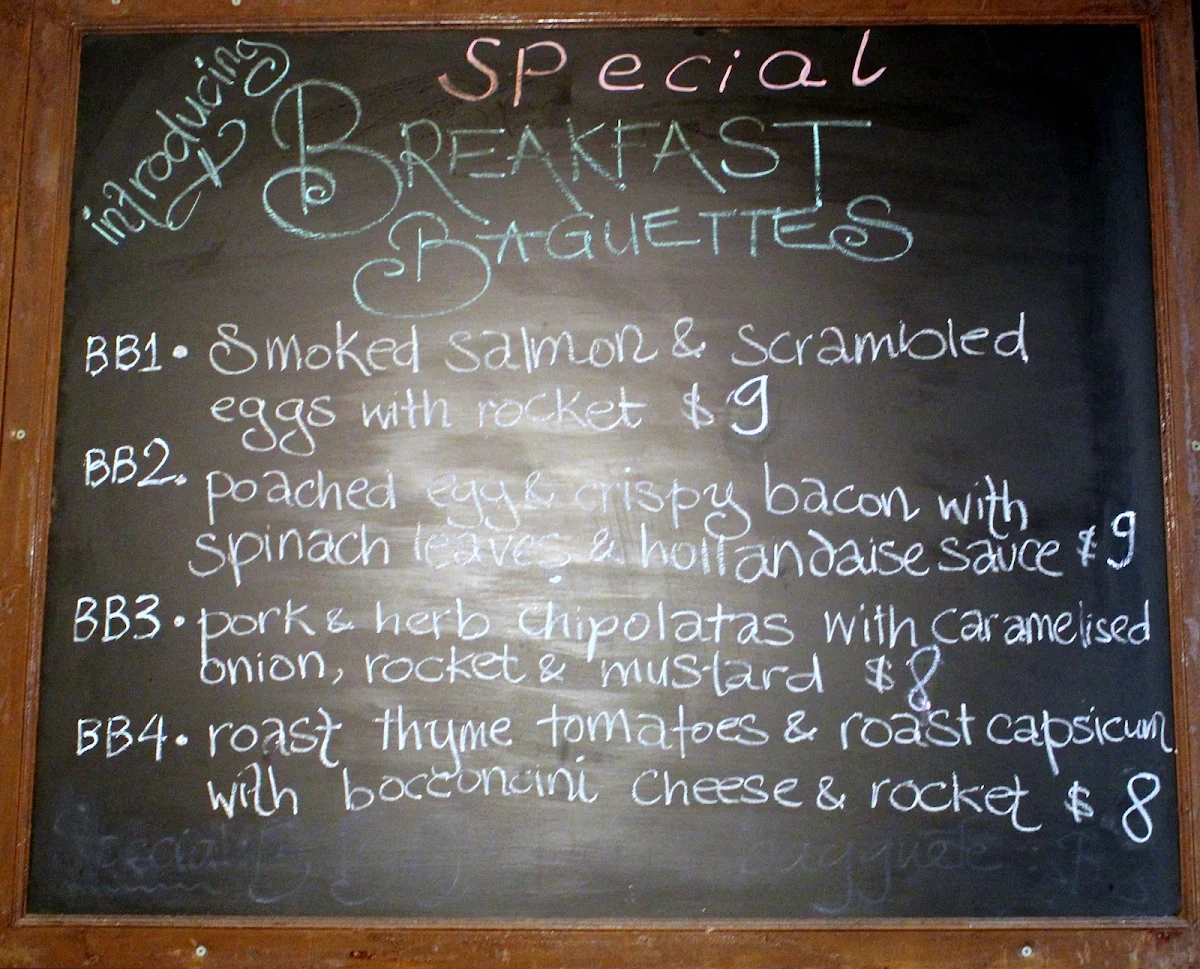 introducing
Special
BREAKFAST
BAGUETTES
BB1. Smoked salmon & scrambled
eggs with rocket $9
BB2. poached egg & crispy bacon with
spinach leaves & hollandaise sauce $9
BB3. pork & herb chipolatas with caramelised
onion, rocket & mustard $8
BB4. roast thyme tomatoes & roast capsicum
with bocconcini cheese & rocket $8
Special